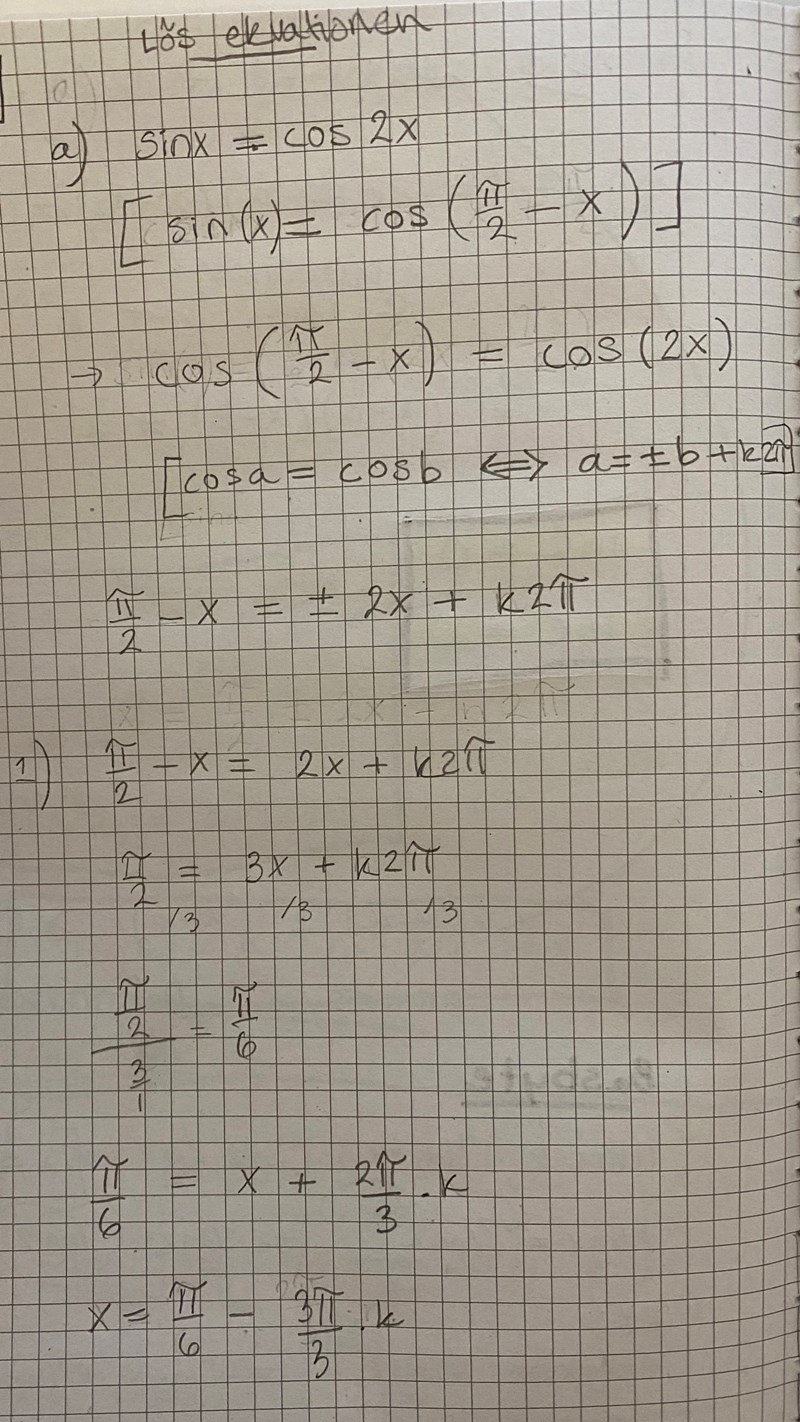 Lös ekvationen
a) sinx = cos 2x
[ sin(x) = cos (π/2 - x) ]
→ cos (π/2 - x) = cos (2x)
[cosa = cosb ⇔ a = ±b + k2π]
π/2 - x = ± 2x + k2π
1) π/2 - x = 2x + k2π
π/2 = 3x + k2π
/3 /3 /3
(π/2)/(3/1) = π/6
π/6 = x + 2π/3 · k
x = π/6 - 3π/3 · k